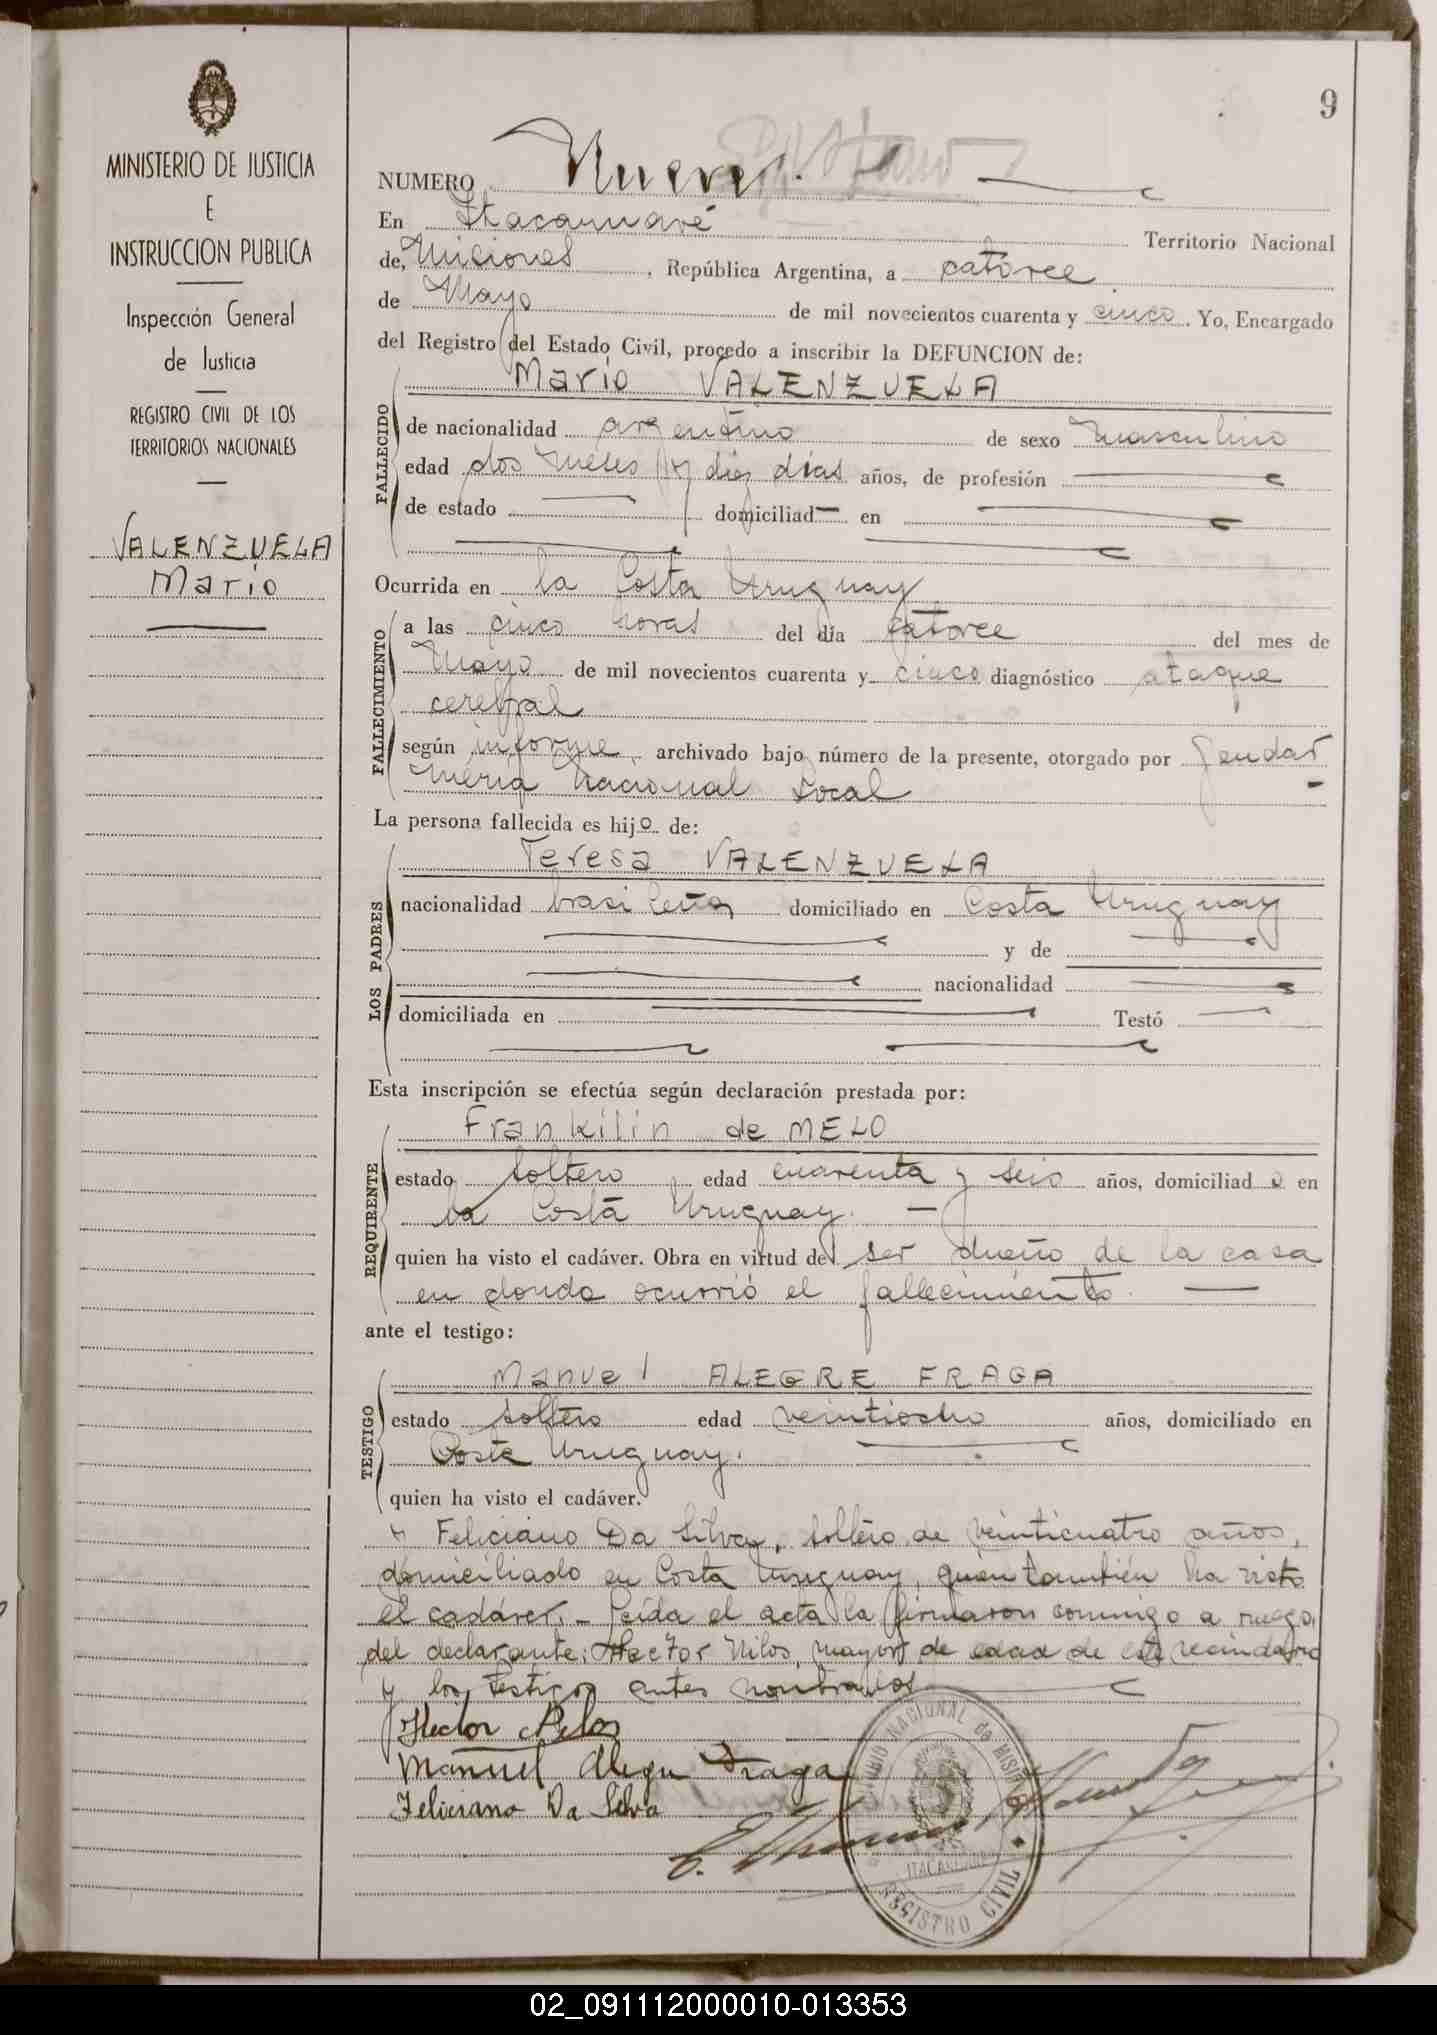 9
MINISTERIO DE JUSTICIA
E
INSTRUCCION PUBLICA
Inspección General
de Justicia
REGISTRO CIVIL DE LOS
TERRITORIOS NACIONALES
VALENZUELA
Mario
NUMERO Nueve.
En Itacaruaré Territorio Nacional
de, Misiones, República Argentina, a catorce
de Mayo de mil novecientos cuarenta y cinco. Yo, Encargado
del Registro del Estado Civil, procedo a inscribir la DEFUNCION de:
Mario VALENZUELA
FALLECIDO
de nacionalidad argentino de sexo masculino
edad dos meses y diez días años, de profesión
de estado domiciliad en
Ocurrida en la Costa Uruguay
FALLECIMIENTO
a las cinco horas del día catorce del mes de
Mayo de mil novecientos cuarenta y cinco diagnóstico ataque
cerebral
según informe, archivado bajo número de la presente, otorgado por Gendar
mería Nacional Local
La persona fallecida es hijo de:
Teresa VALENZUELA
LOS PADRES
nacionalidad brasileña domiciliado en Costa Uruguay
y de
nacionalidad
domiciliada en Testó
Esta inscripción se efectúa según declaración prestada por:
Frankilin de MELO
REQUIRENTE
estado soltero edad cuarenta y seis años, domiciliad o en
la Costa Uruguay.
quien ha visto el cadáver. Obra en virtud de ser dueño de la casa
en donde ocurrió el fallecimiento.
ante el testigo:
Manuel ALEGRE FRAGA
TESTIGO
estado soltero edad veintiocho años, domiciliado en
Costa Uruguay.
quien ha visto el cadáver.
y Feliciano Da Silva, soltero de veinticuatro años,
domiciliado en Costa Uruguay, quien también ha visto
el cadáver.- Leída el acta la firmaron conmigo a ruego
del declarante: Hector Nilos, mayor de edad de este vecindario
y los testigos antes nombrados
Hector
Manuel Alegre Fraga
Feliciano Da Silva
NACIONAL de MISIONES
ITACARUARE
REGISTRO CIVIL
02_091112000010-013353